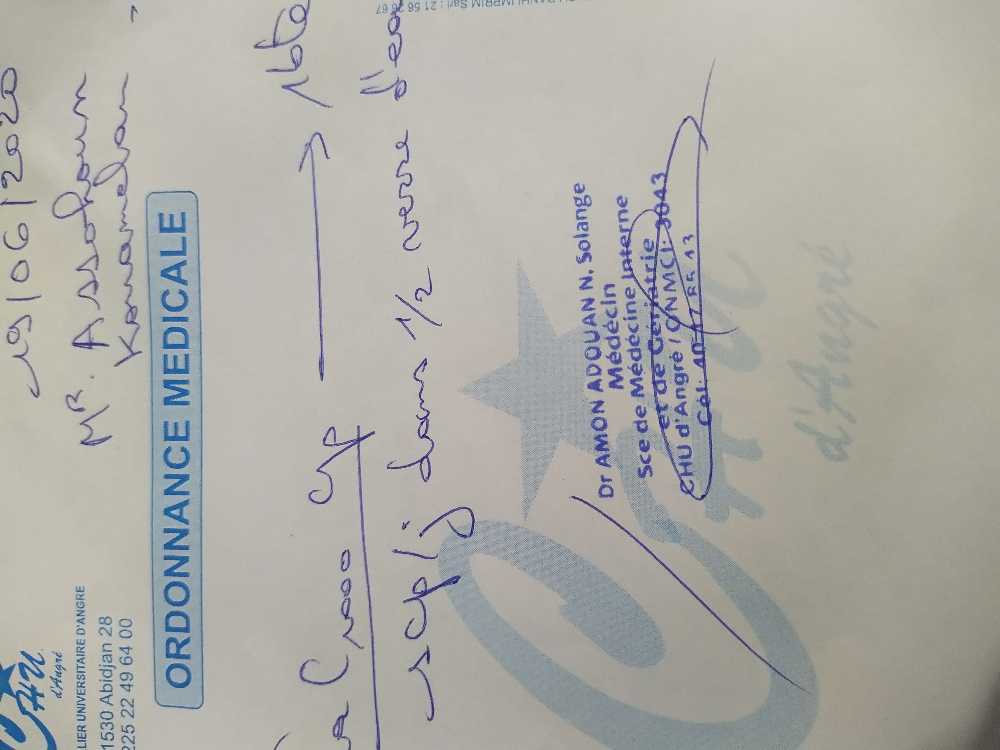 CHU
d'Angré
LIER UNIVERSITAIRE D'ANGRE
1530 Abidjan 28
225 22 49 64 00
19/06/2020
MR. Assohoun
Kouamelan
ORDONNANCE MEDICALE
a C1000 Cp → 1bte
1cp/j dans 1/2 verre d'ea
Dr AMON ADOUAN N. Solange
Médécin
Sce de Médécine Interne
et de Gériatrie
CHU d'Angré / ONMCI: 3043
Cél: 40
CHU
d'Angré